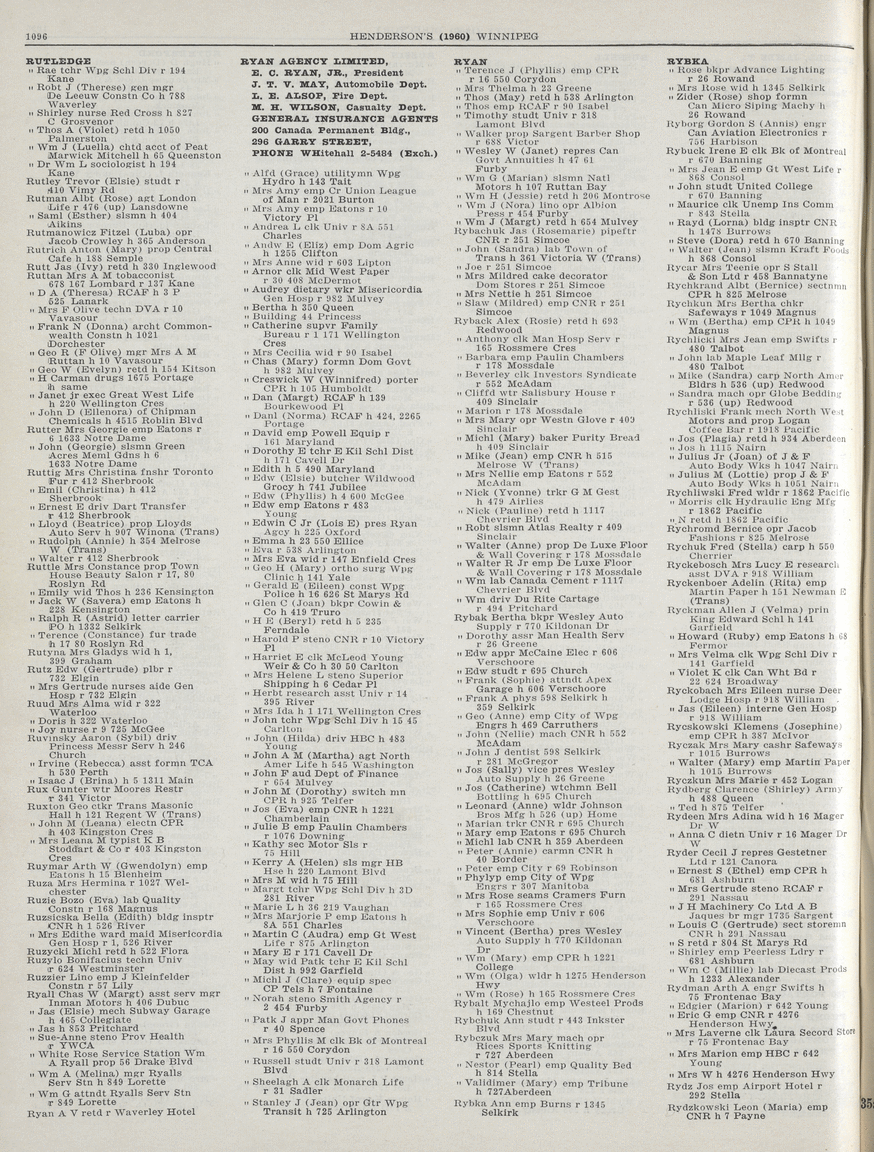 1096
HENDERSON'S (1960) WINNIPEG
RUTLEDGE
" Rae tchr Wpg Schl Div r 194
Kane
" Robt J (Therese) gen mgr
De Leeuw Constn Co h 788
Waverley
" Shirley nurse Red Cross h 827
C Grosvenor
" Thos A (Violet) retd h 1050
Palmerston
" Wm J (Luella) chtd acct of Peat
Marwick Mitchell h 65 Queenston
" Dr Wm L sociologist h 194
Kane
Rutley Trevor (Elsie) studt r
410 Vimy Rd
Rutman Albt (Rose) agt London
Life r 476 (up) Lansdowne
" Saml (Esther) slsmn h 404
Aikins
Rutmanowicz Fitzel (Luba) opr
Jacob Crowley h 365 Anderson
Rutrich Anton (Mary) prop Central
Cafe h 188 Semple
Rutt Jas (Ivy) retd h 330 Inglewood
Ruttan Mrs A M tobacconist
678 167 Lombard r 137 Kane
" D A (Theresa) RCAF h 3 P
525 Lanark
" Mrs F Olive techn DVA r 10
Vavasour
" Frank N (Donna) archt Common-
wealth Constn h 1021
Dorchester
" Geo R (F Olive) mgr Mrs A M
Ruttan h 10 Vavasour
" Geo W (Evelyn) retd h 154 Kitson
" H Carman drugs 1675 Portage
h same
" Janet jr exec Great West Life
h 220 Wellington Cres
" John D (Ellenora) of Chipman
Chemicals h 4515 Roblin Blvd
Rutter Mrs Georgie emp Eatons r
6 1633 Notre Dame
" John (Georgie) slsmn Green
Acres Meml Gdns h 6
1633 Notre Dame
Ruttig Mrs Christina fnshr Toronto
Fur r 412 Sherbrook
" Emil (Christina) h 412
Sherbrook
" Ernest E driv Dart Transfer
r 412 Sherbrook
" Lloyd (Beatrice) prop Lloyds
Auto Serv h 907 Winona (Trans)
" Rudolph (Annie) h 354 Melrose
W (Trans)
" Walter r 412 Sherbrook
Ruttle Mrs Constance prop Town
House Beauty Salon r 17, 80
Roslyn Rd
" Emily wid Thos h 236 Kensington
" Jack W (Savera) emp Eatons h
228 Kensington
" Ralph R (Astrid) letter carrier
PO h 1332 Selkirk
" Terence (Constance) fur trade
h 17 80 Roslyn Rd
Rutyna Mrs Gladys wid h 1,
399 Graham
Rutz Edw (Gertrude) plbr r
732 Elgin
" Mrs Gertrude nurses aide Gen
Hosp r 732 Elgin
Ruud Mrs Alma wid r 322
Waterloo
" Doris h 322 Waterloo
" Joy nurse r 9 725 McGee
Ruvinsky Aaron (Sybil) driv
Princess Messr Serv h 246
Church
" Irvine (Rebecca) asst formn TCA
h 530 Perth
" Isaac J (Brina) h 5 1311 Main
Rux Gunter wtr Moores Restr
r 341 Victor
Ruxton Geo ctkr Trans Masonic
Hall h 121 Regent W (Trans)
" John M (Leana) electn CPR
h 403 Kingston Cres
" Mrs Leana M typist K B
Stoddart & Co r 403 Kingston
Cres
Ruymar Arth W (Gwendolyn) emp
Eatons h 15 Blenheim
Ruza Mrs Hermina r 1027 Wel-
chester
Ruzie Bozo (Eva) lab Quality
Constn r 168 Magnus
Ruzsicska Bella (Edith) bldg insptr
CNR h 1 526 River
" Mrs Edithe ward maid Misericordia
Gen Hosp r 1, 526 River
Ruzycki Michl retd h 522 Flora
Ruzylo Bonifacius techn Univ
r 624 Westminster
Ruzzier Lino emp J Kleinfelder
Constn r 57 Lily
Ryall Chas W (Margt) asst serv mgr
Inman Motors h 406 Dubuc
" Jas (Elsie) mech Subway Garage
h 465 Collegiate
" Jas h 853 Pritchard
" Sue-Anne steno Prov Health
r YWCA
" White Rose Service Station Wm
A Ryall prop 56 Drake Blvd
" Wm A (Melina) mgr Ryalls
Serv Stn h 849 Lorette
" Wm G attndt Ryalls Serv Stn
r 849 Lorette
Ryan A V retd r Waverley Hotel
RYAN AGENCY LIMITED,
E. C. RYAN, JR., President
J. T. V. MAY, Automobile Dept.
L. E. ALSOP, Fire Dept.
M. H. WILSON, Casualty Dept.
GENERAL INSURANCE AGENTS
200 Canada Permanent Bldg.,
296 GARRY STREET,
PHONE WHitehall 2-5484 (Exch.)
" Alfd (Grace) utilitymn Wpg
Hydro h 143 Tait
" Mrs Amy emp Cr Union League
of Man r 2021 Burton
" Mrs Amy emp Eatons r 10
Victory Pl
" Andrea L clk Univ r 8A 551
Charles
" Andw E (Eliz) emp Dom Agric
h 1255 Clifton
" Mrs Anne wid r 603 Lipton
" Arnor clk Mid West Paper
r 30 408 McDermot
" Audrey dietary wkr Misericordia
Gen Hosp r 982 Mulvey
" Bertha h 350 Queen
" Building 44 Princess
" Catherine supvr Family
Bureau r 1 171 Wellington
Cres
" Mrs Cecilia wid r 90 Isabel
" Chas (Mary) formn Dom Govt
h 982 Mulvey
" Creswick W (Winnifred) porter
CPR h 105 Humboldt
" Dan (Margt) RCAF h 139
Bourkewood Pl
" Danl (Norma) RCAF h 424, 2265
Portage
" David emp Powell Equip r
161 Maryland
" Dorothy E tchr E Kil Schl Dist
h 171 Cavell Dr
" Edith h 5 490 Maryland
" Edw (Elsie) butcher Wildwood
Grocy h 741 Jubilee
" Edw (Phyllis) h 4 600 McGee
" Edw emp Eatons r 483
Young
" Edwin C Jr (Lois E) pres Ryan
Agcy h 225 Oxford
" Emma h 23 550 Ellice
" Eva r 538 Arlington
" Mrs Eva wid r 147 Enfield Cres
" Geo H (Mary) ortho surg Wpg
Clinic h 141 Yale
" Gerald E (Eileen) const Wpg
Police h 16 626 St Marys Rd
" Glen C (Joan) bkpr Cowin &
Co h 419 Truro
" H E (Beryl) retd h 5 235
Ferndale
" Harold P steno CNR r 10 Victory
Pl
" Harriet E clk McLeod Young
Weir & Co h 30 50 Carlton
" Mrs Helene L steno Superior
Shipping h 6 Cedar Pl
" Herbt research asst Univ r 14
395 River
" Mrs Ida h 1 171 Wellington Cres
" John tchr Wpg Schl Div h 15 45
Carlton
" John (Hilda) driv HBC h 483
Young
" John A M (Martha) agt North
Amer Life h 545 Washington
" John F aud Dept of Finance
r 654 Mulvey
" John M (Dorothy) switch mn
CPR h 925 Telfer
" Jos (Eva) emp CNR h 1221
Chamberlain
" Julie B emp Paulin Chambers
r 1076 Downing
" Kathy sec Motor Sls r
75 Hill
" Kerry A (Helen) sls mgr HB
Hse h 220 Lamont Blvd
" Mrs M wid h 75 Hill
" Margt tchr Wpg Schl Div h 3D
281 River
" Marie L h 36 219 Vaughan
" Mrs Marjorie P emp Eatons h
8A 551 Charles
" Martin C (Audra) emp Gt West
Life r 875 Arlington
" Mary E r 171 Cavell Dr
" May wid Patk tchr E Kil Schl
Dist h 992 Garfield
" Michl J (Clare) equip spec
CP Tels h 7 Fontaine
" Norah steno Smith Agency r
2 454 Furby
" Patk J appr Man Govt Phones
r 40 Spence
" Mrs Phyllis M clk Bk of Montreal
r 16 550 Corydon
" Russell studt Univ r 318 Lamont
Blvd
" Sheelagh A clk Monarch Life
r 31 Sadler
" Stanley J (Jean) opr Gtr Wpg
Transit h 725 Arlington
RYAN
" Terence J (Phyllis) emp CPR
r 16 550 Corydon
" Mrs Thelma h 23 Greene
" Thos (May) retd h 538 Arlington
" Thos emp RCAF r 90 Isabel
" Timothy studt Univ r 318
Lamont Blvd
" Walker prop Sargent Barber Shop
r 688 Victor
" Wesley W (Janet) repres Can
Govt Annuities h 47 61
Furby
" Wm G (Marian) slsmn Natl
Motors h 107 Ruttan Bay
" Wm H (Jessie) retd h 206 Montrose
" Wm J (Nora) lino opr Albion
Press r 454 Furby
" Wm J (Margt) retd h 654 Mulvey
Rybachuk Jas (Rosemarie) pipeftr
CNR r 251 Simcoe
" John (Sandra) lab Town of
Trans h 361 Victoria W (Trans)
" Joe r 251 Simcoe
" Mrs Mildred cake decorator
Dom Stores r 251 Simcoe
" Mrs Nettie h 251 Simcoe
" Slaw (Mildred) emp CNR r 251
Simcoe
Ryback Alex (Rosie) retd h 693
Redwood
" Anthony clk Man Hosp Serv r
165 Rossmere Cres
" Barbara emp Paulin Chambers
r 178 Mossdale
" Beverley clk Investors Syndicate
r 552 McAdam
" Cliffd wtr Salisbury House r
409 Sinclair
" Marion r 178 Mossdale
" Mrs Mary opr Westn Glove r 409
Sinclair
" Michl (Mary) baker Purity Bread
h 409 Sinclair
" Mike (Jean) emp CNR h 515
Melrose W (Trans)
" Mrs Nellie emp Eatons r 552
McAdam
" Nick (Yvonne) trkr G M Gest
h 479 Airlies
" Nick (Pauline) retd h 1117
Chevrier Blvd
" Robt slsmn Atlas Realty r 409
Sinclair
" Walter (Anne) prop De Luxe Floor
& Wall Covering r 178 Mossdale
" Walter R Jr emp De Luxe Floor
& Wall Covering r 178 Mossdale
" Wm lab Canada Cement r 1117
Chevrier Blvd
" Wm driv Du Rite Cartage
r 494 Pritchard
Rybak Bertha bkpr Wesley Auto
Supply r 770 Kildonan Dr
" Dorothy assr Man Health Serv
r 26 Greene
" Edw appr McCaine Elec r 606
Verschoore
" Edw studt r 695 Church
" Frank (Sophie) attndt Apex
Garage h 606 Verschoore
" Frank A phys 598 Selkirk h
359 Selkirk
" Geo (Anne) emp City of Wpg
Engrs h 469 Carruthers
" John (Nellie) mach CNR h 552
McAdam
" John J dentist 598 Selkirk
r 281 McGregor
" Jos (Sally) vice pres Wesley
Auto Supply h 26 Greene
" Jos (Catherine) wtchmn Bell
Bottling h 695 Church
" Leonard (Anne) wldr Johnson
Bros Mfg h 526 (up) Home
" Marian trkr CNR r 695 Church
" Mary emp Eatons r 695 Church
" Michl lab CNR h 359 Aberdeen
" Peter (Annie) carmn CNR h
40 Border
" Peter emp City r 69 Robinson
" Phylyp emp City of Wpg
Engrs r 307 Manitoba
" Mrs Rose seams Cramers Furn
r 165 Rossmere Cres
" Mrs Sophie emp Univ r 606
Verschoore
" Vincent (Bertha) pres Wesley
Auto Supply h 770 Kildonan
Dr
" Wm (Mary) emp CPR h 1221
College
" Wm (Olga) wldr h 1275 Henderson
Hwy
" Wm (Rose) h 165 Rossmere Cres
Rybalt Mychajlo emp Westeel Prods
h 169 Chestnut
Rybchuk Ann studt r 443 Inkster
Blvd
Rybczuk Mrs Mary mach opr
Rices Sports Knitting
r 727 Aberdeen
" Nestor (Pearl) emp Quality Bed
h 814 Stella
" Validimer (Mary) emp Tribune
h 727Aberdeen
Rybka Ann emp Burns r 1345
Selkirk
RYBKA
" Rose bkpr Advance Lighting
r 26 Rowand
" Mrs Rose wid h 1345 Selkirk
" Zider (Rose) shop formn
Can Micro Siping Machy h
26 Rowand
Ryborg Gordon S (Annis) engr
Can Aviation Electronics r
756 Harbison
Rybuck Irene E clk Bk of Montreal
r 670 Banning
" Mrs Jean E emp Gt West Life r
868 Consol
" John studt United College
r 670 Banning
" Maurice clk Unemp Ins Comm
r 843 Stella
" Rayd (Lorna) bldg insptr CNR
h 1478 Burrows
" Steve (Dora) retd h 670 Banning
" Walter (Jean) slsmn Kraft Foods
h 868 Consol
Rycar Mrs Teenie opr S Stall
& Son Ltd r 458 Bannatyne
Rychkrand Albt (Bernice) sectnmn
CPR h 825 Melrose
Rychkun Mrs Bertha chkr
Safeways r 1049 Magnus
" Wm (Bertha) emp CPR h 1049
Magnus
Rychlicki Mrs Jean emp Swifts r
480 Talbot
" John lab Maple Leaf Mllg r
480 Talbot
" Mike (Sandra) carp North Amer
Bldrs h 536 (up) Redwood
" Sandra mach opr Globe Bedding
r 536 (up) Redwood
Rychliski Frank mech North West
Motors and prop Logan
Coffee Bar r 1918 Pacific
" Jos (Plagia) retd h 934 Aberdeen
" Jos h 1115 Nairn
" Julius Jr (Joan) of J & F
Auto Body Wks h 1047 Nairn
" Julius M (Lottie) prop J & F
Auto Body Wks h 1051 Nairn
Rychliwski Fred wldr r 1862 Pacific
" Morris clk Hydraulic Eng Mfg
r 1862 Pacific
" N retd h 1862 Pacific
Rychromd Bernice opr Jacob
Fashions r 825 Melrose
Rychuk Fred (Stella) carp h 550
Cherrier
Ryckebosch Mrs Lucy E research
asst DVA r 918 William
Ryckenboer Adelin (Rita) emp
Martin Paper h 151 Newman E
(Trans)
Ryckman Allen J (Velma) prin
King Edward Schl h 141
Garfield
" Howard (Ruby) emp Eatons h 68
Fermor
" Mrs Velma clk Wpg Schl Div r
141 Garfield
" Violet K clk Can Wht Bd r
22 624 Broadway
Ryckobach Mrs Eileen nurse Deer
Lodge Hosp r 918 William
" Jas (Eileen) interne Gen Hosp
r 918 William
Rycskowski Klemens (Josephine)
emp CPR h 387 McIvor
Ryczak Mrs Mary cashr Safeways
r 1015 Burrows
" Walter (Mary) emp Martin Paper
h 1015 Burrows
Ryczkun Mrs Marie r 452 Logan
Rydberg Clarence (Shirley) Army
h 488 Queen
" Ted h 875 Telfer
Rydeen Mrs Adina wid h 16 Mager
Dr W
" Anna C dietn Univ r 16 Mager Dr
W
Ryder Cecil J repres Gestetner
Ltd r 121 Canora
" Ernest S (Ethel) emp CPR h
681 Ashburn
" Mrs Gertrude steno RCAF r
291 Nassau
" J H Machinery Co Ltd A B
Jaques br mgr 1735 Sargent
" Louis C (Gertrude) sect storemn
CNR h 291 Nassau
" S retd r 804 St Marys Rd
" Shirley emp Peerless Ldry r
681 Ashburn
" Wm C (Millie) lab Diecast Prods
h 1233 Alexander
Rydman Arth A engr Swifts h
75 Frontenac Bay
" Edgier (Marion) r 642 Young
" Eric G emp CNR r 4276
Henderson Hwy
" Mrs Laverne clk Laura Secord
r 75 Frontenac Bay
" Mrs Marion emp HBC r 642
Young
" Mrs W h 4276 Henderson Hwy
Rydz Jos emp Airport Hotel r
292 Stella
Rydzkowski Leon (Maria) emp
CNR h 7 Payne